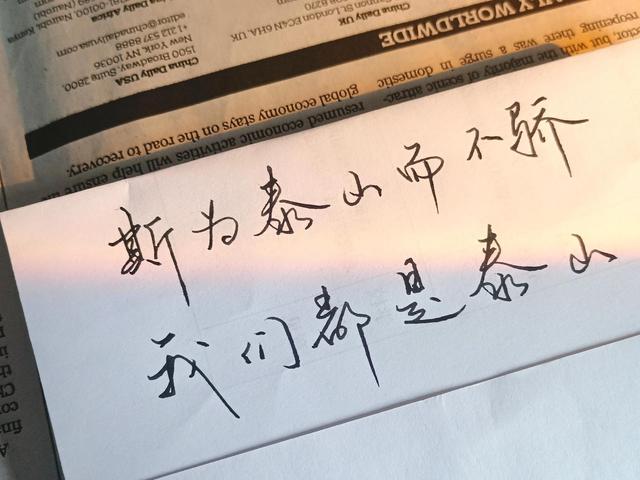 斯为泰山而不骄
我们都是泰山
China Daily USA
1500 Broadway, Suite 2800,
New York, NY 10036
+1 212 537 8888
editor@chinadailyusa.com
China Daily UK
London EC4N 6HA, UK
WORLDWIDE
resumed economic activities will help ensure
global economy stays on the road to recovery.
the majority of scenic attrac-
but with
there was a surge in domestic